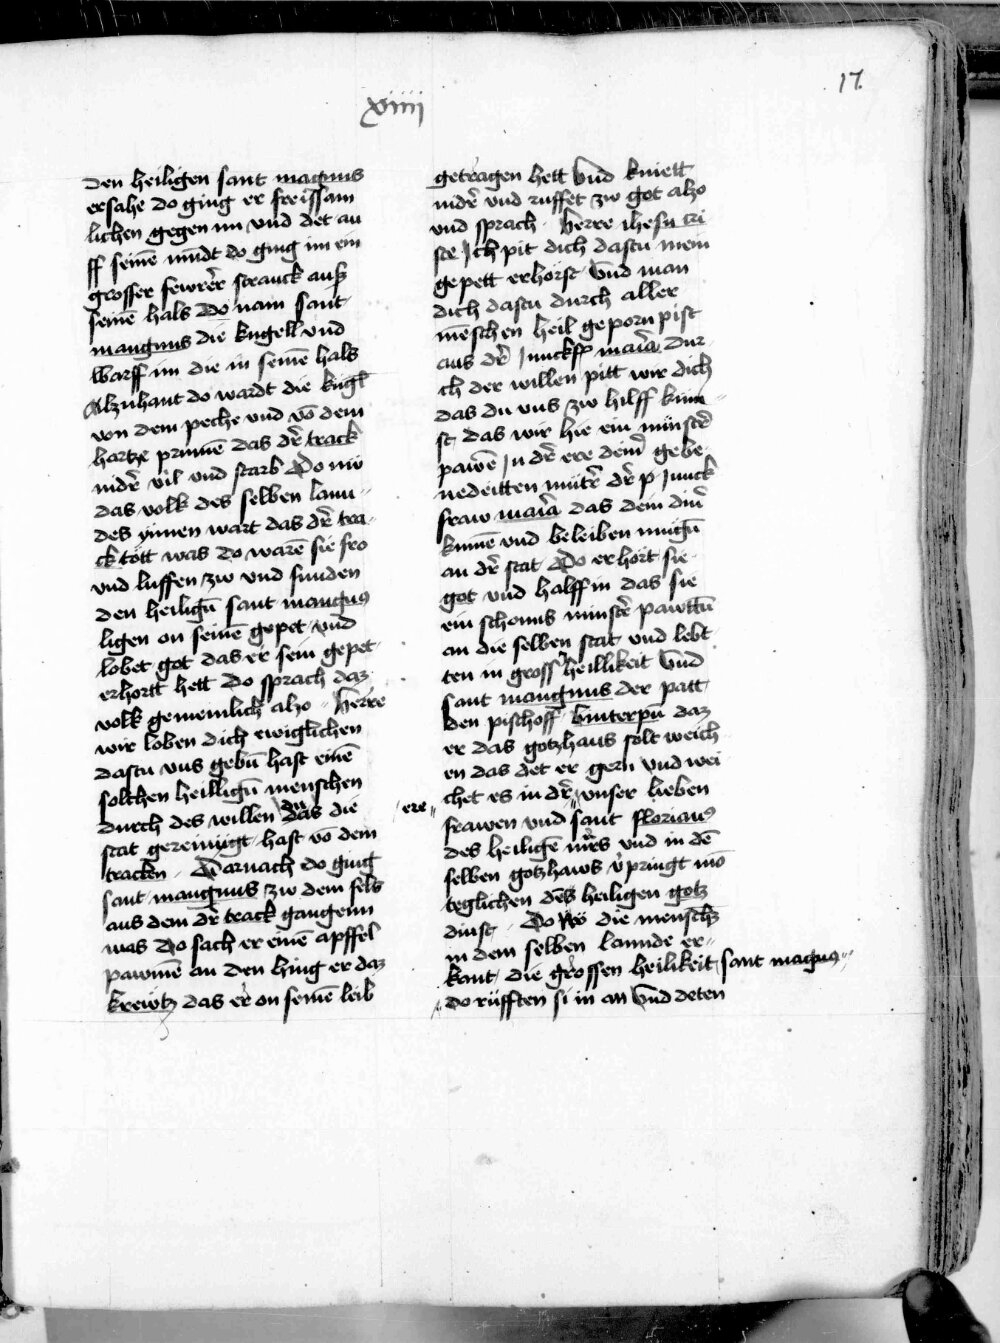 17
xviiij
den heiligen sant magnus
ersahe do ging er freissam
lichen gegen im vnd det au
ff seinē mūdt do ging im ein
grosser fewrēr strauck auß
seinē hals Do nam sant
mangnus die kugell vnd
warff im die in seinē hals
Alzuhant do wardt die kugl
von dem peche vnd vō dem
hartze prinnē das dr̄ track
nidr̄ vil vnd starb Do nū
das volk des selben lann
des ynnen wart das dr̄ tra
ck tott was do warē sie fro
vnd luffen zw vnd funden
den heiligū sant mangnus
ligen on seinē gepet vnd
lobet got das er sein gepet
erhortt hett do sprach daz
volk gemeinlich alzo Herre
wir loben dich ewiglichen
dastu vns gebū hast einē
solchen heilligū menschen
durch des willen du das die
stat gereinigt hast vō dem
tracken Darnach do ging
sant mangnus zw dem fels
aus dem dr̄ track gangenn
was do sach er einē apffel
pawmē an den hing er daz
krewtz das er on seinē leib
getragen hett Vnd kniett
nidr̄ vnd ruffet zw got alzo
vnd sprach Herre ihesu cri
ste Ich pit dich dastu mein
gepett erhorst Vnd man
dich dastu durch aller
mēschen heil geporn pist
aus dr̄ Junckfr maīa Dur
ch der willen pitt wir dich
das du vns zw hilff kum
st das wir hie ein münstr̄
pawē In dr̄ ere deinr̄ gebe
nedeitten mūtr̄ dr̄ p Junck
fraw maīa das dein dinr̄
kunnē vnd beleiben mugū
an dr̄ stat Do erhort sie
got vnd halff in das sie
ein schonns munstr̄ pawtū
an die selben stat vnd lebt
ten in grosser heillikeit Vnd
sant mangnus der patt
den pischoff Vinterpū daz
er das gotzhaus solt weich
en das det er gern vnd wei
chet es in dr̄ ere vnser lieben
frawen vnd sant florians
des heiligē mr̄s vnd in dē
selben gotzhaws v̄pringt mō
teglichen dēs heiligen gotz
dinst Do die menschz
in dem selben lannde er
kant die grossen heilikeit sant magnus
do rüfften si in an Vnd deten